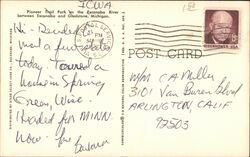 IOWA
Pioneer Trail Park on the Escanaba River
between Escanaba and Gladstone, Michigan.
POST CARD
EISENHOWER·USA
Hi -
met a few
today. Toured a
home in Spring
Green, Wisc
Headed for MINN
now - for
Barbara
M/M C A Miller
3101 Van Buren Blvd
ARLINGTON, CALIF
92503